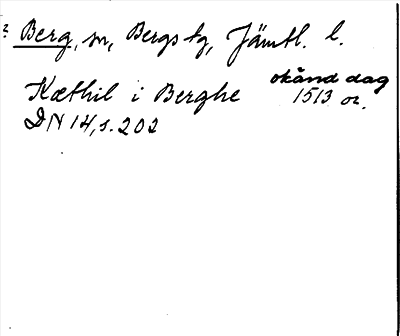 ? Berg, sn, Bergs tg, Jämtl. l.
Kæthil i Berghe okänd dag 1513 or.
DN 14, s. 202